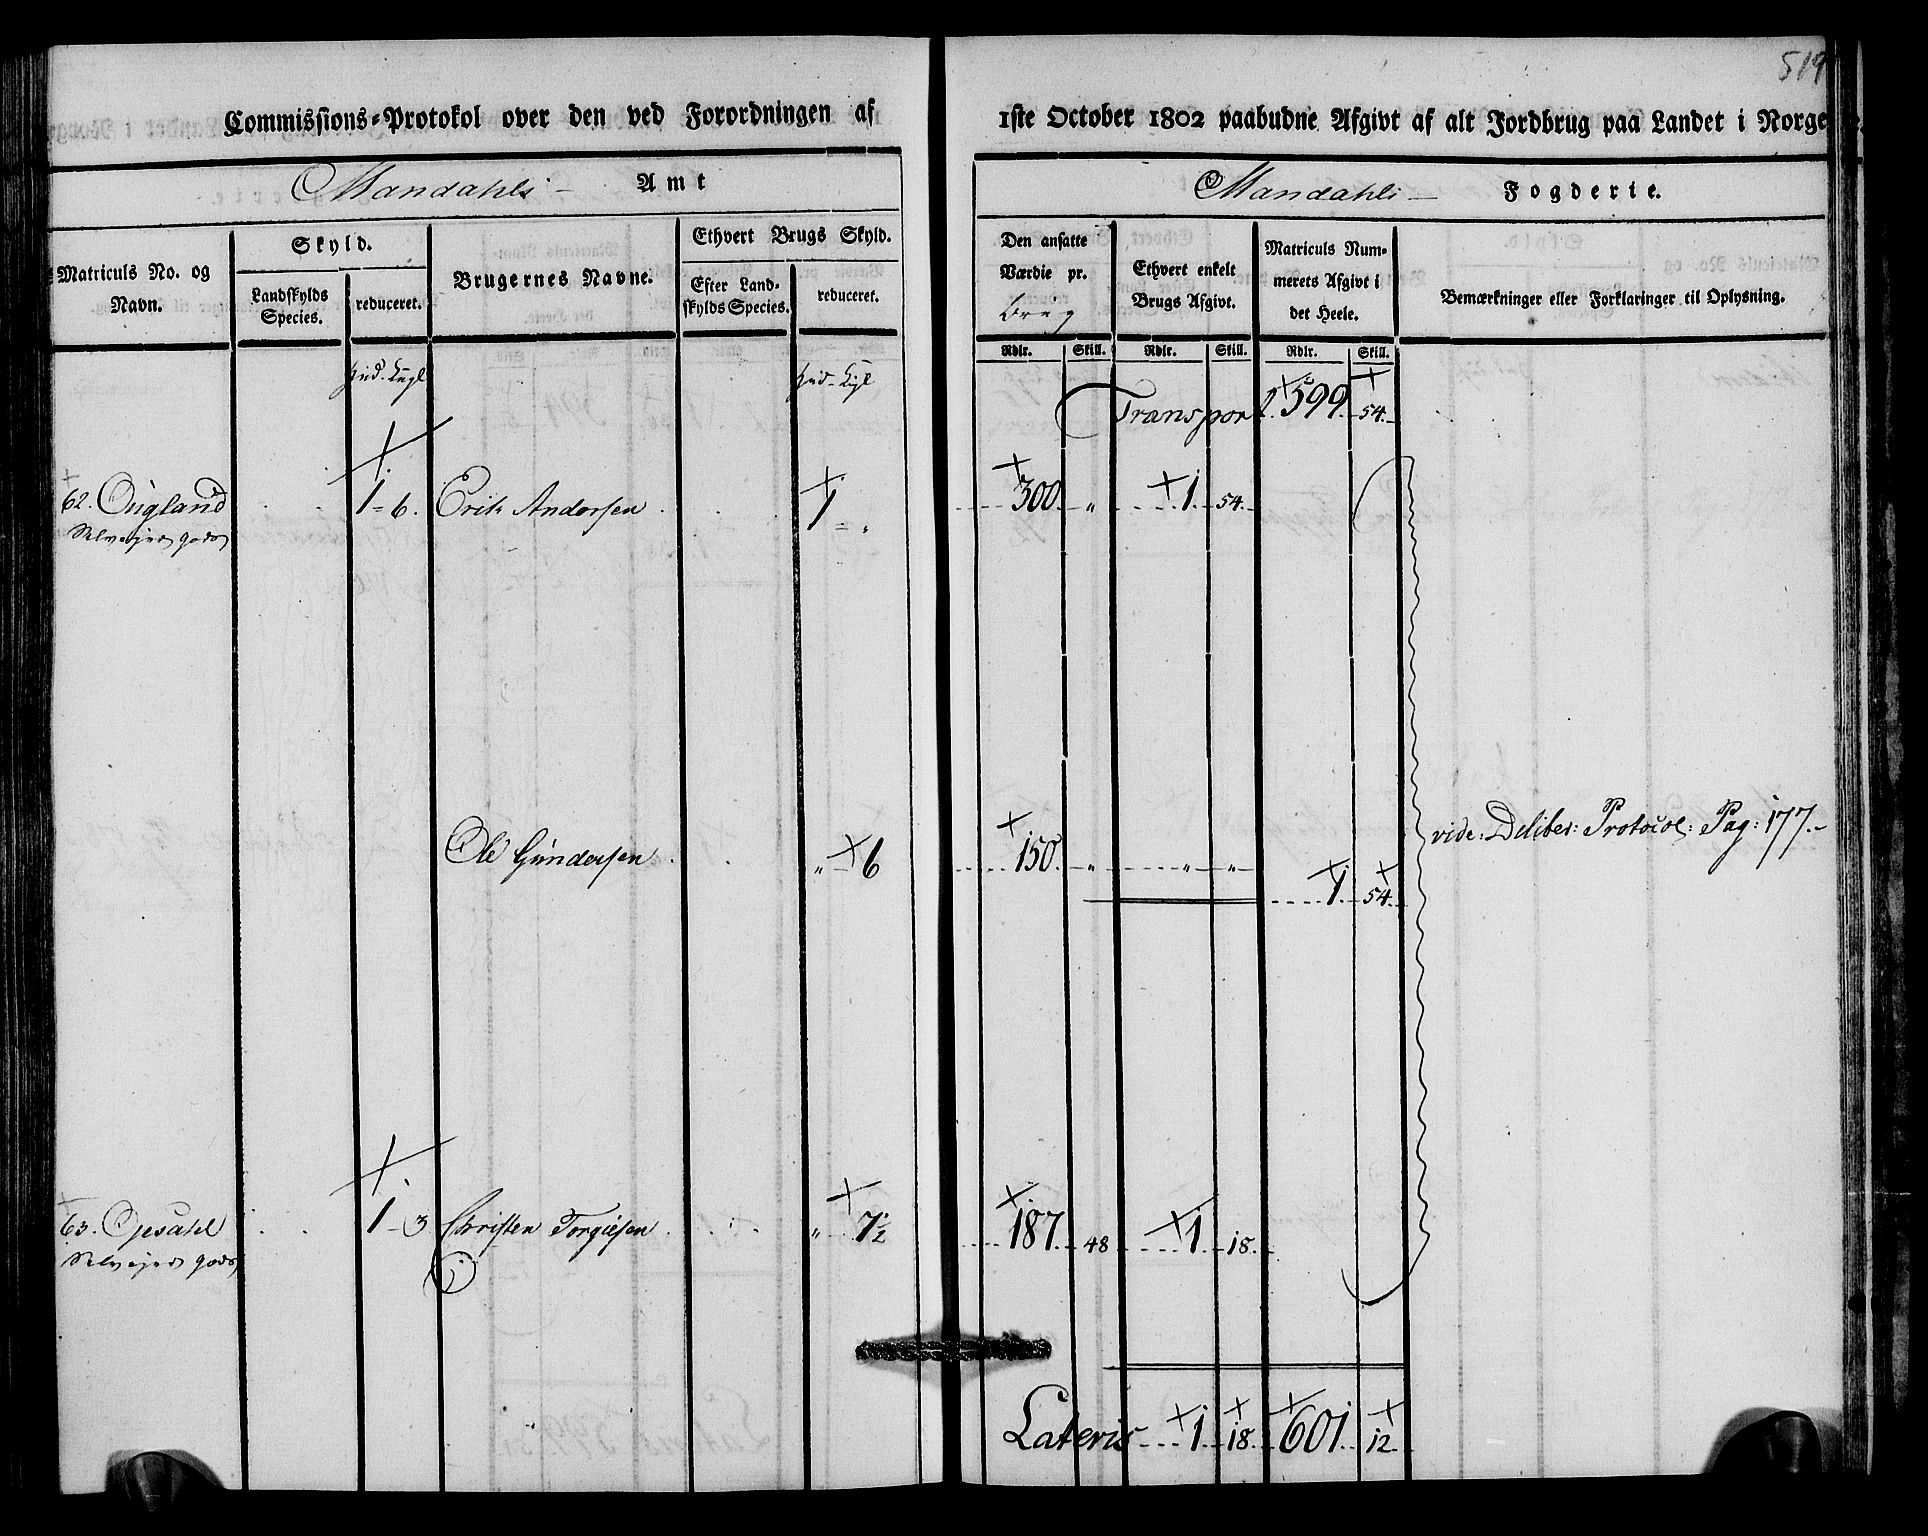 519
Commissions-Protokol over den ved Forordningen af 1ste October 1802 paabudne Afgivt af alt Jordbrug paa Landet i Norge
Mandahls - Amt
Mandahls - Fogderie.
Matriculs No. og Navn.
Skyld.
Landskylds Species.
reduceret.
Brugernes Navne.
Ethvert Brugs Skyld.
Efter Landskylds Species.
reduceret.
Den ansatte Værdie pr. brug
Ethvert enkelt Brugs Afgivt.
Matriculs Nummerets Afgivt i det Heele.
Bemærkninger eller Forklaringer til Oplysning.
Rdlr. Skill. Rdlr. Skill. Rdlr. Skill.
Transport 599. 54.
62. Øugland 1 - 6. Erik Andersen 1 = „ 300. „ 1. 54.
Selvejer gods
vide: Deliber: Protocol: Pag: 177.
Ole Gundersen „ 6 150. „ „ „
1. 54.
63. Opsahl 1 - 3 Christen Torgiesen „ 7½ 187. 48 1. 18.
Selvejer gods
Lateris 1. 18. 601. 12